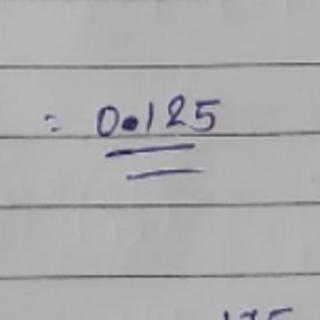 = 0.125